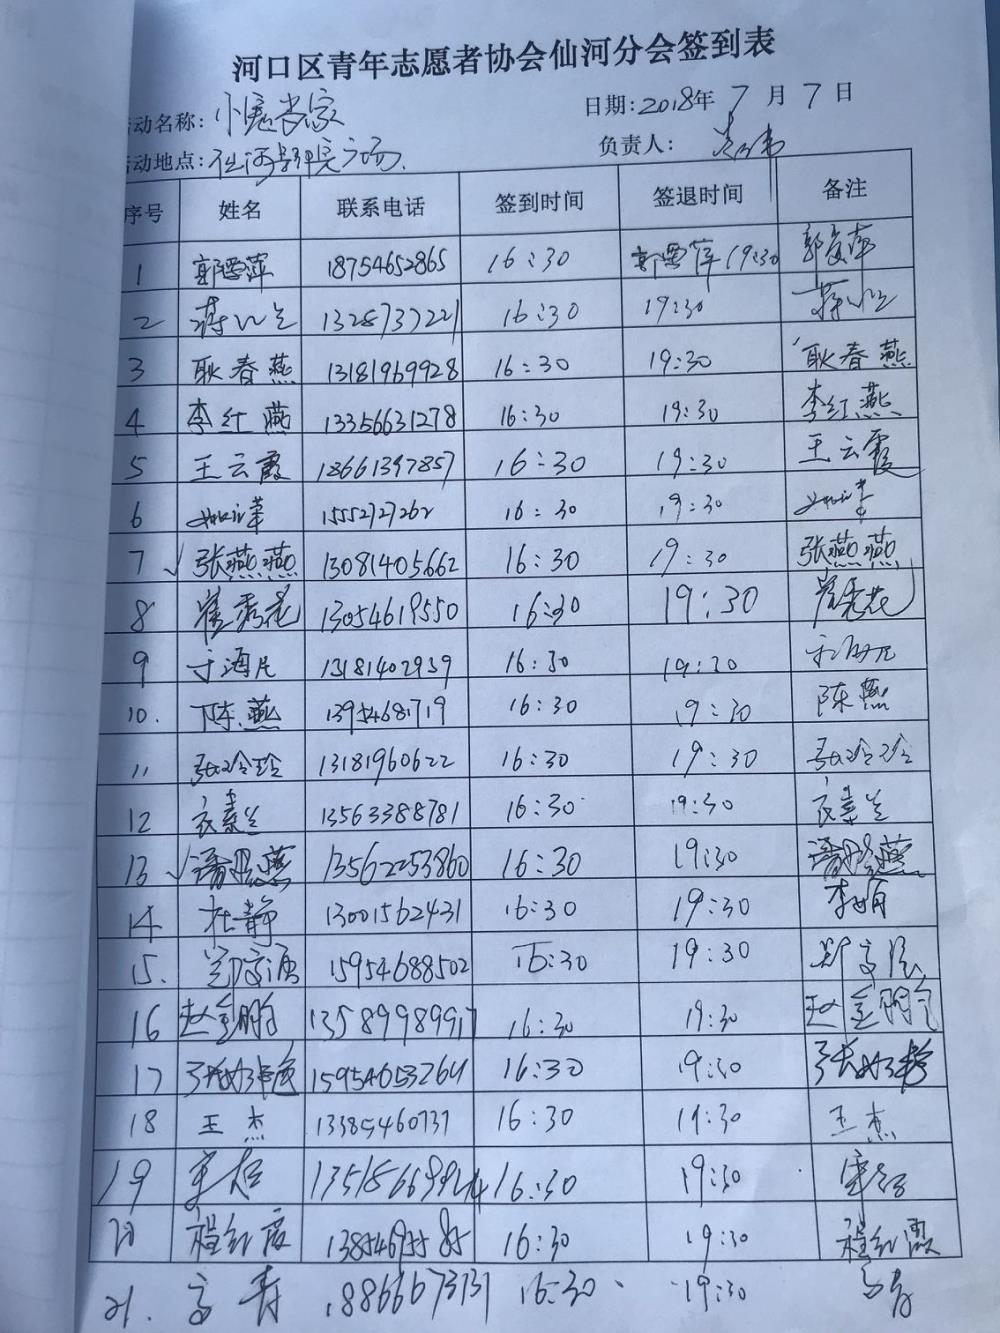 河口区青年志愿者协会仙河分会签到表
动名称: 小 当家 日期: 2018年 7 月 7 日
动地点: 仙河影院广场. 负责人:
序号 姓名 联系电话 签到时间 签退时间 备注
1 郭雪萍 18754652865 16:30 郭雪萍 19:30 郭雪萍
2 蒋 13287377221 16:30 19:30 蒋
3 耿春燕 13181969928 16:30 19:30 耿春燕
4 李红燕 13356631278 16:30 19:30 李红燕
5 王云霞 18661397857 16:30 19:30 王云霞
6 15552727262 16:30 19:30
7 √ 张燕燕 13081405662 16:30 19:30 张燕燕
8 崔秀花 13054619550 16:30 19:30 崔秀花
9 海 13181402939 16:30 19:30
10. 陈燕 13954681719 16:30 19:30 陈燕
11 张玲玲 13181960622 16:30 19:30 张玲玲
12 衣素兰 13563388781 16:30 19:30 衣素兰
13 √ 潘 燕 13562253860 16:30 19:30 潘 燕
14 杜静 13001562431 16:30 19:30 李娟
15. 15954688502 16:30 19:30 郑
16 赵金朋 13589989917 16:30 19:30 赵金朋
17 张好艳 15954653264 16:30 19:30 张好艳
18 王杰 13385460737 16:30 19:30 王杰
19 16:30 19:30
20 程红霞 13854695585 16:30 19:30 程红霞
21. 高青 18866673131 16:30 19:30 高青